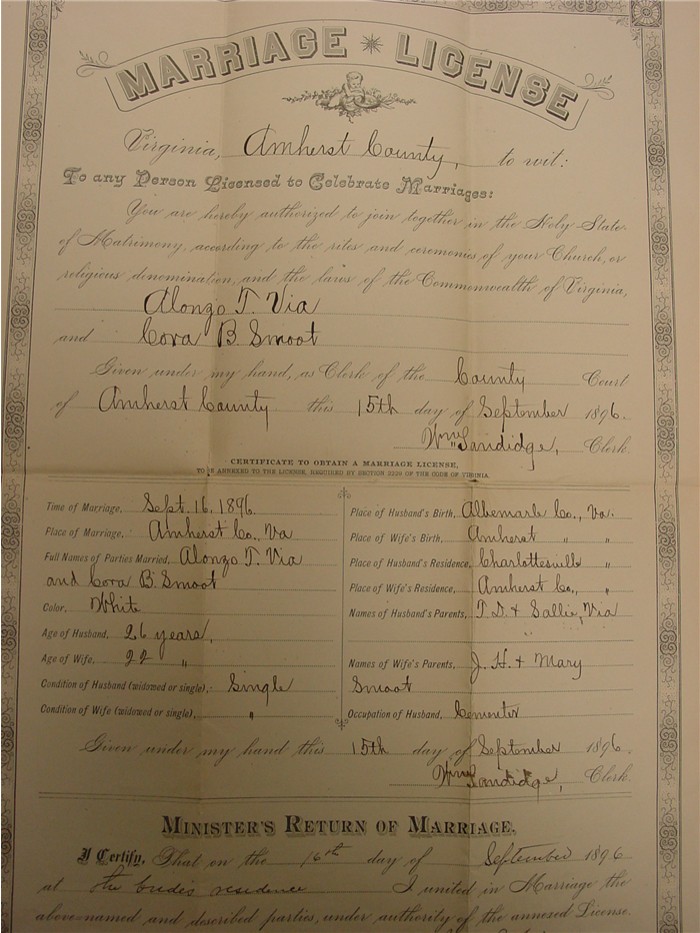 MARRIAGE LICENSE
Virginia, Amherst County, to wit:
To any Person Licensed to Celebrate Marriages:
You are hereby authorized to join together in the Holy State
of Matrimony, according to the rites and ceremonies of your Church, or
religious denomination, and the laws of the Commonwealth of Virginia,
Alonzo T. Via
and Cora B. Smoot
Given under my hand, as Clerk of the County Court
of Amherst County this 15th day of September 1896.
Wm. Sandidge, Clerk.
CERTIFICATE TO OBTAIN A MARRIAGE LICENSE,
TO BE ANNEXED TO THE LICENSE, REQUIRED BY SECTION 2229 OF THE CODE OF VIRGINIA.
Time of Marriage, Sept. 16, 1896.
Place of Marriage, Amherst Co., Va
Full Names of Parties Married, Alonzo T. Via
and Cora B. Smoot
Color, White
Age of Husband, 26 years,
Age of Wife, 22 "
Condition of Husband (widowed or single), Single
Condition of Wife (widowed or single), "
Place of Husband's Birth, Albemarle Co., Va.
Place of Wife's Birth, Amherst " "
Place of Husband's Residence, Charlottesville "
Place of Wife's Residence, Amherst Co., "
Names of Husband's Parents, T. D. & Sallie, Via
Names of Wife's Parents, J. H. & Mary
Smoot
Occupation of Husband, Cementer
Given under my hand this 15th day of September 1896.
Wm. Sandidge, Clerk.
MINISTER'S RETURN OF MARRIAGE.
I Certify, That on the 16th day of September 1896
at the brides residence I united in Marriage the
above-named and described parties, under authority of the annexed License.